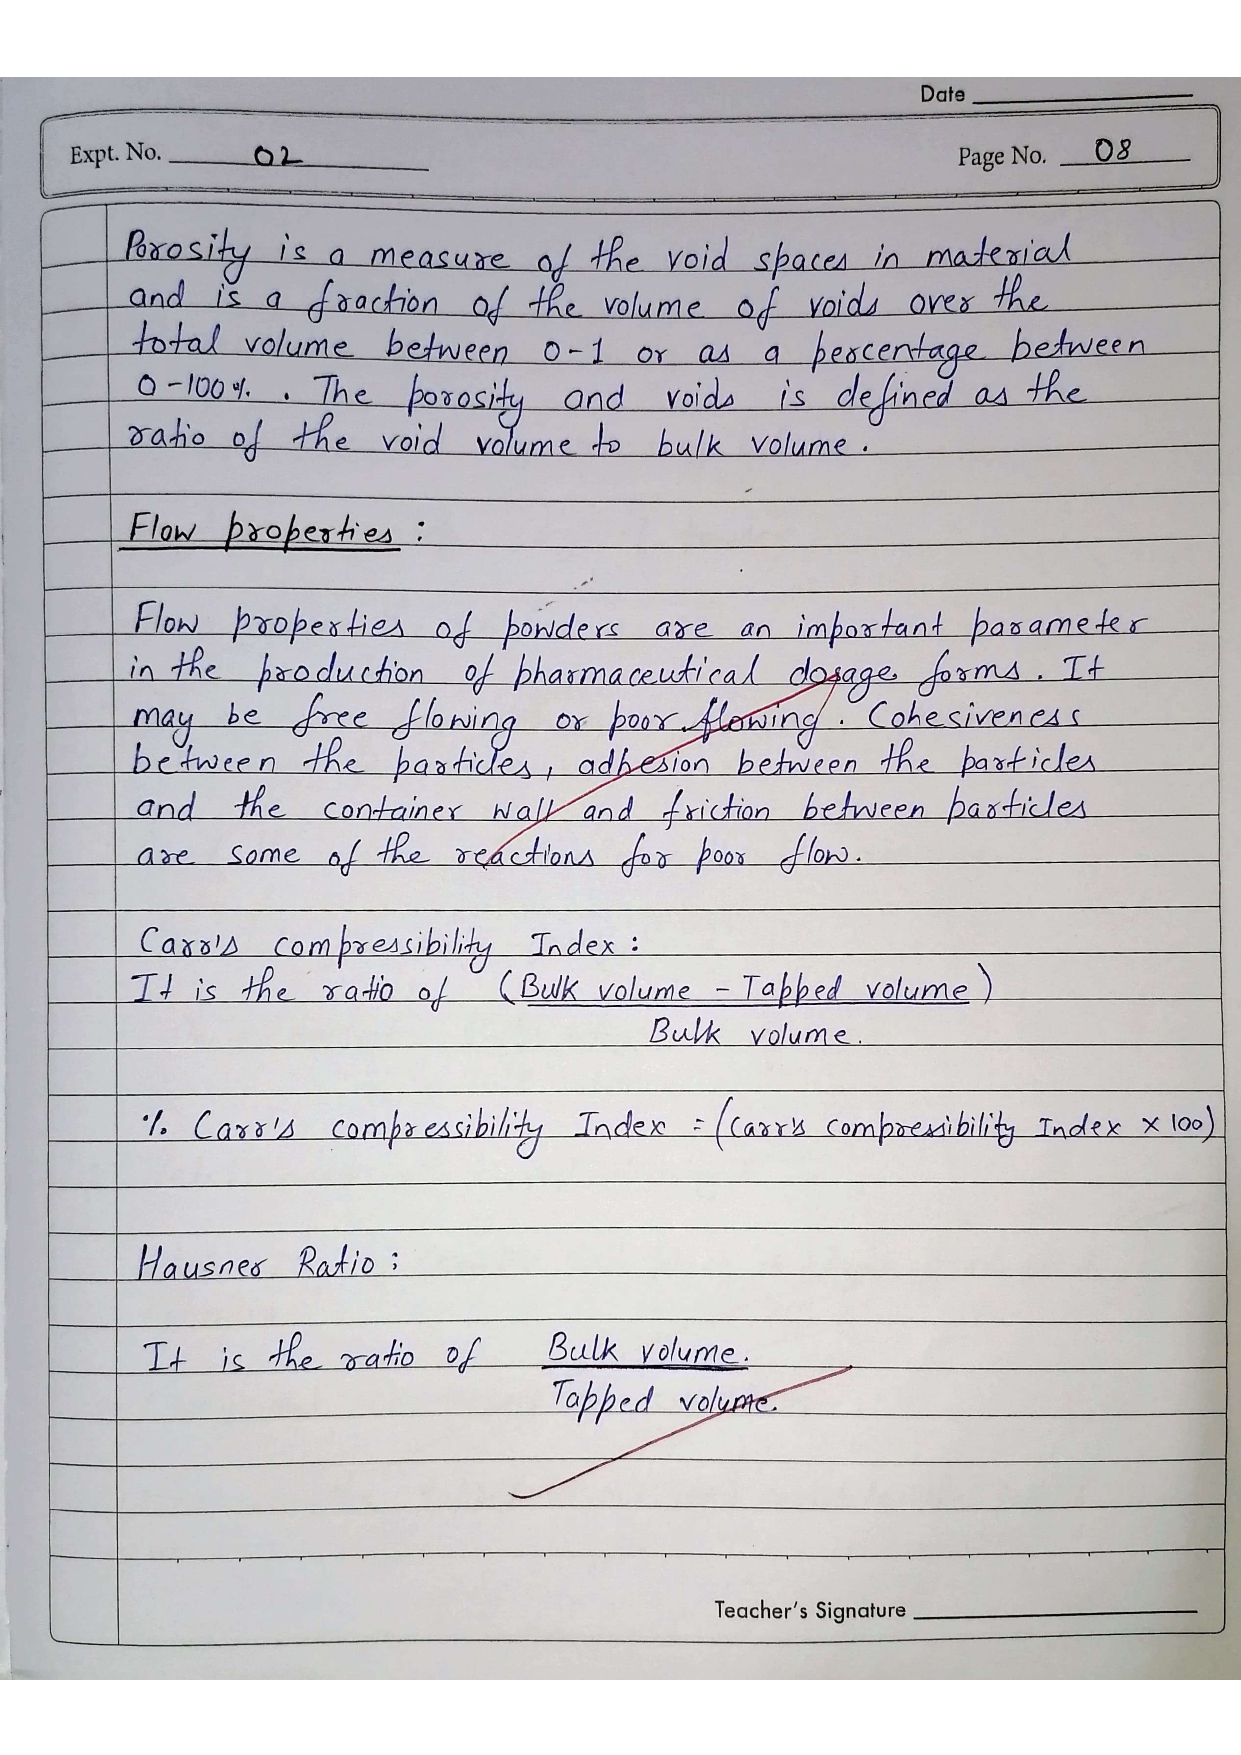 Date
Expt. No. 02
Page No. 08
Porosity is a measure of the void spaces in material
and is a fraction of the volume of voids over the
total volume between 0-1 or as a percentage between
0-100%. . The porosity and voids is defined as the
ratio of the void volume to bulk volume.
Flow properties :
Flow properties of powders are an important parameter
in the production of pharmaceutical dosage forms. It
may be free flowing or poor flowing. Cohesiveness
between the particles, adhesion between the particles
and the container wall and friction between particles
are some of the reactions for poor flow.
Carr's compressibility Index :
It is the ratio of (Bulk volume - Tapped volume)
Bulk volume.
% Carr's compressibility Index = (Carr's compressibility Index x 100)
Hausner Ratio :
It is the ratio of Bulk volume.
Tapped volume.
Teacher's Signature